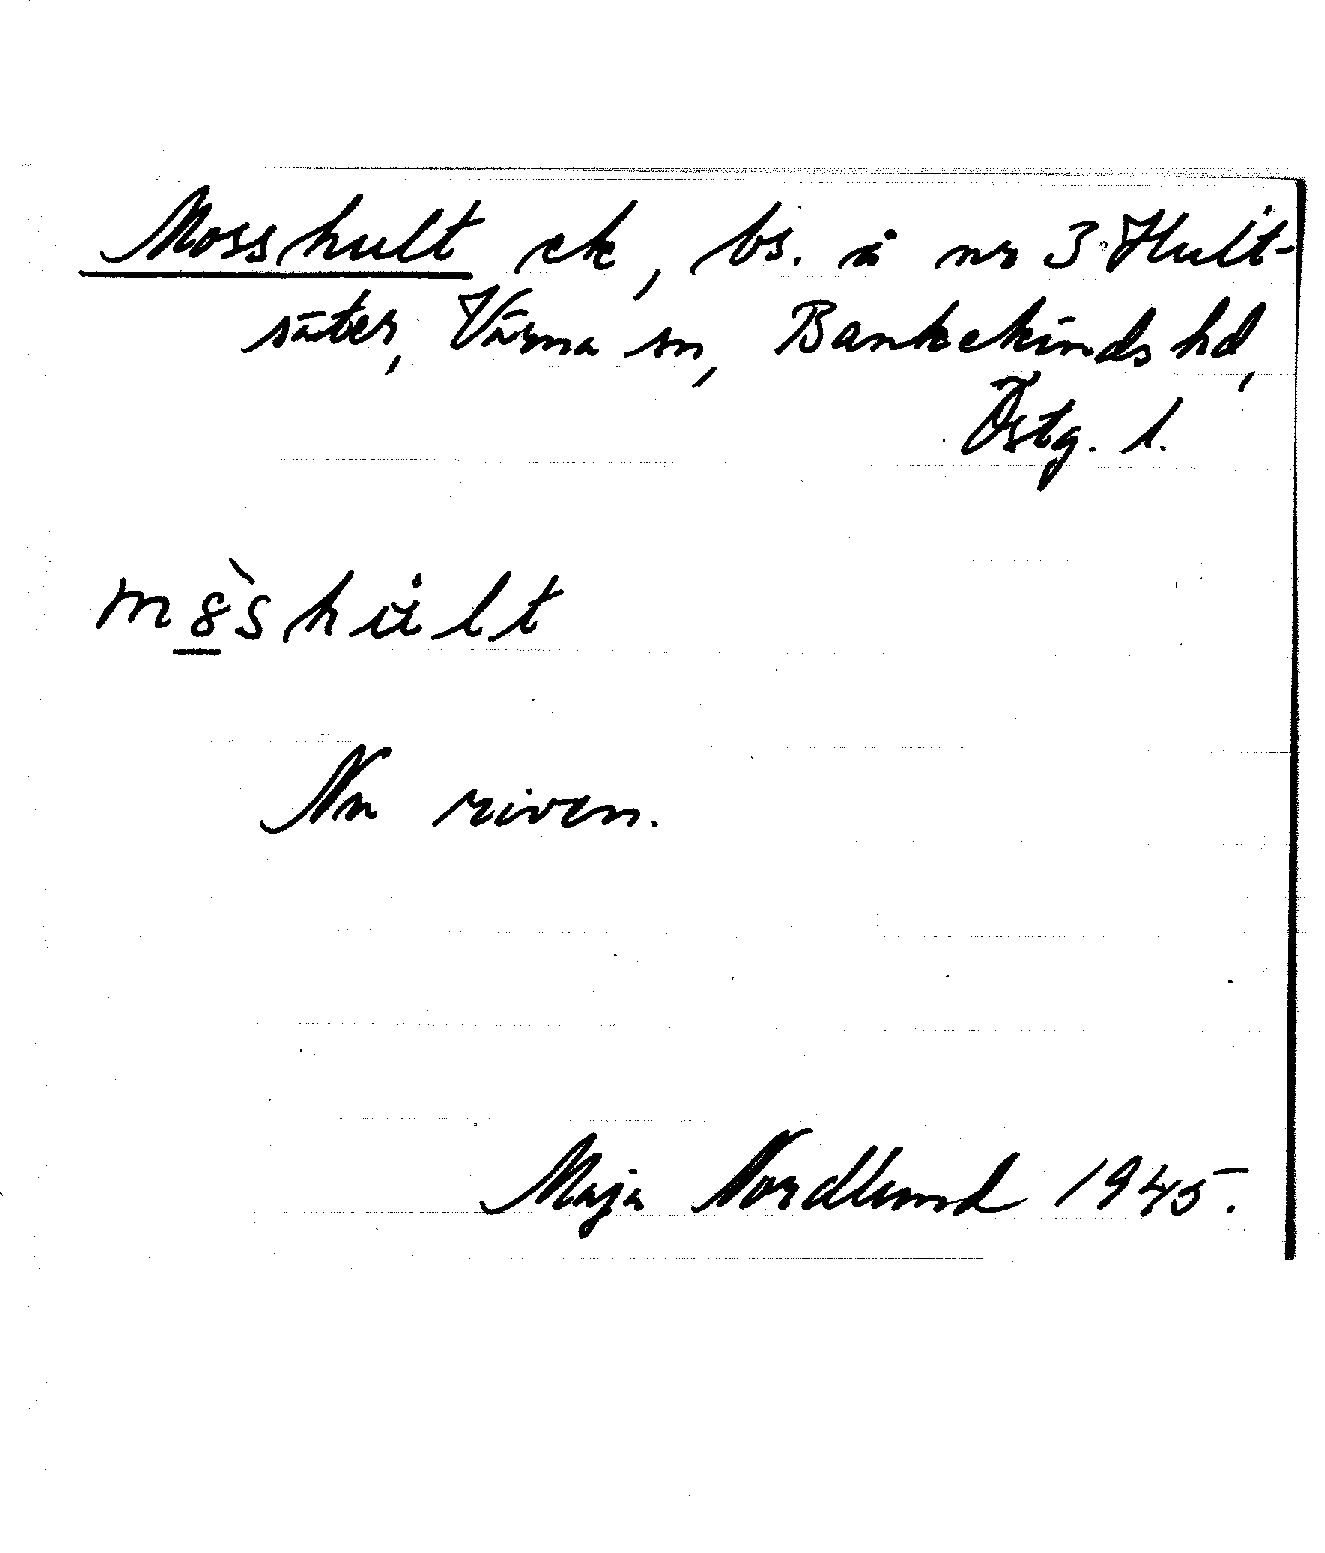 Mosshult ek, bs. å nr 3 Hult-
säter, Värna sn, Bankekinds hd,
Östg. l.
m8̀shult
Nu riven.
Maja Nordlund 1945.